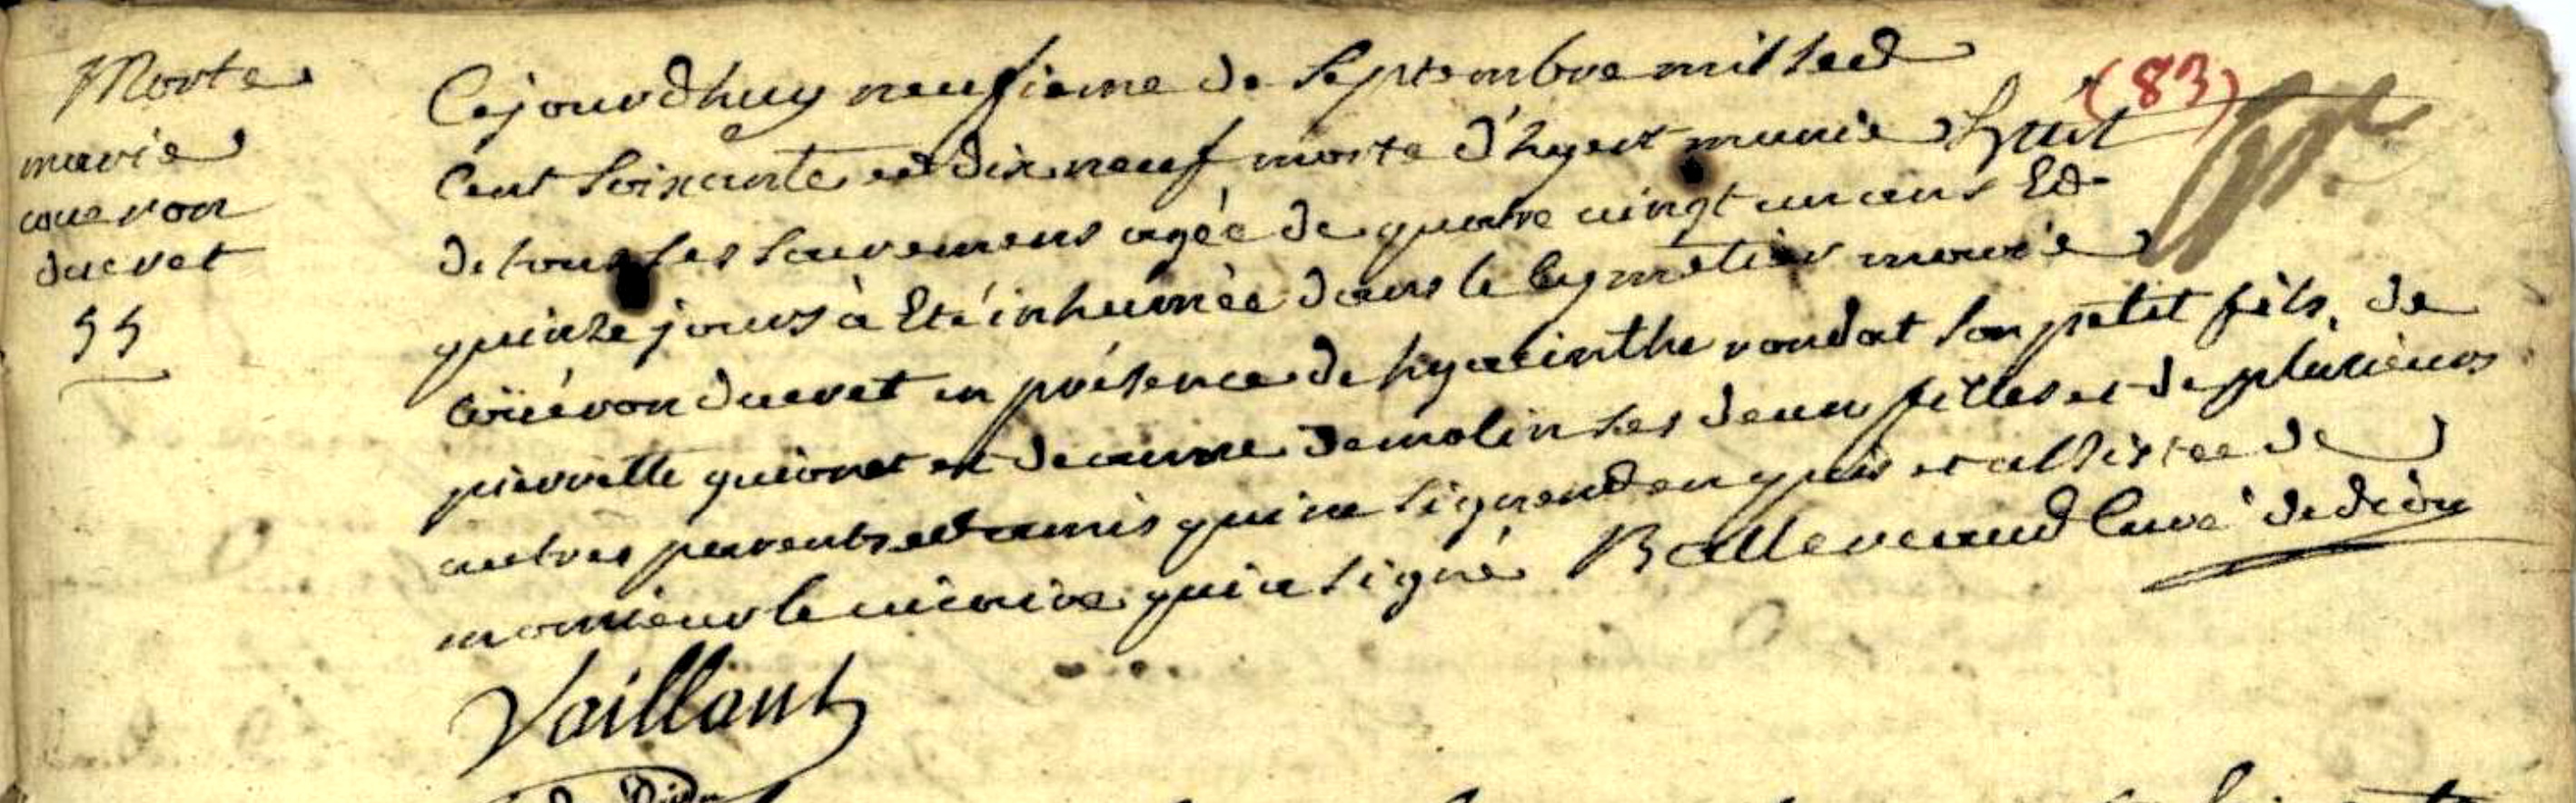 Morte
marie
coueron
ducret
55
Cejourdhuy neufieme de Septembre mil sed
(83)
Cent Soixante et dix neuf morte d'hyert munie
de tous ses Sacremens agée de quatre vingt un ans Ed
quinze jours à Eté inhumée dans le Cymetier marie
Coüéron ducret en présence de hyacinthe rondot son petit fils, de
pierrette guionet et de anne demolin ses deux filles et de plusieurs
autres parents et amis qui ne signend enquis et assistee de
monsieur le vicaire qui a signé Balleveaud Curé de
Vaillant